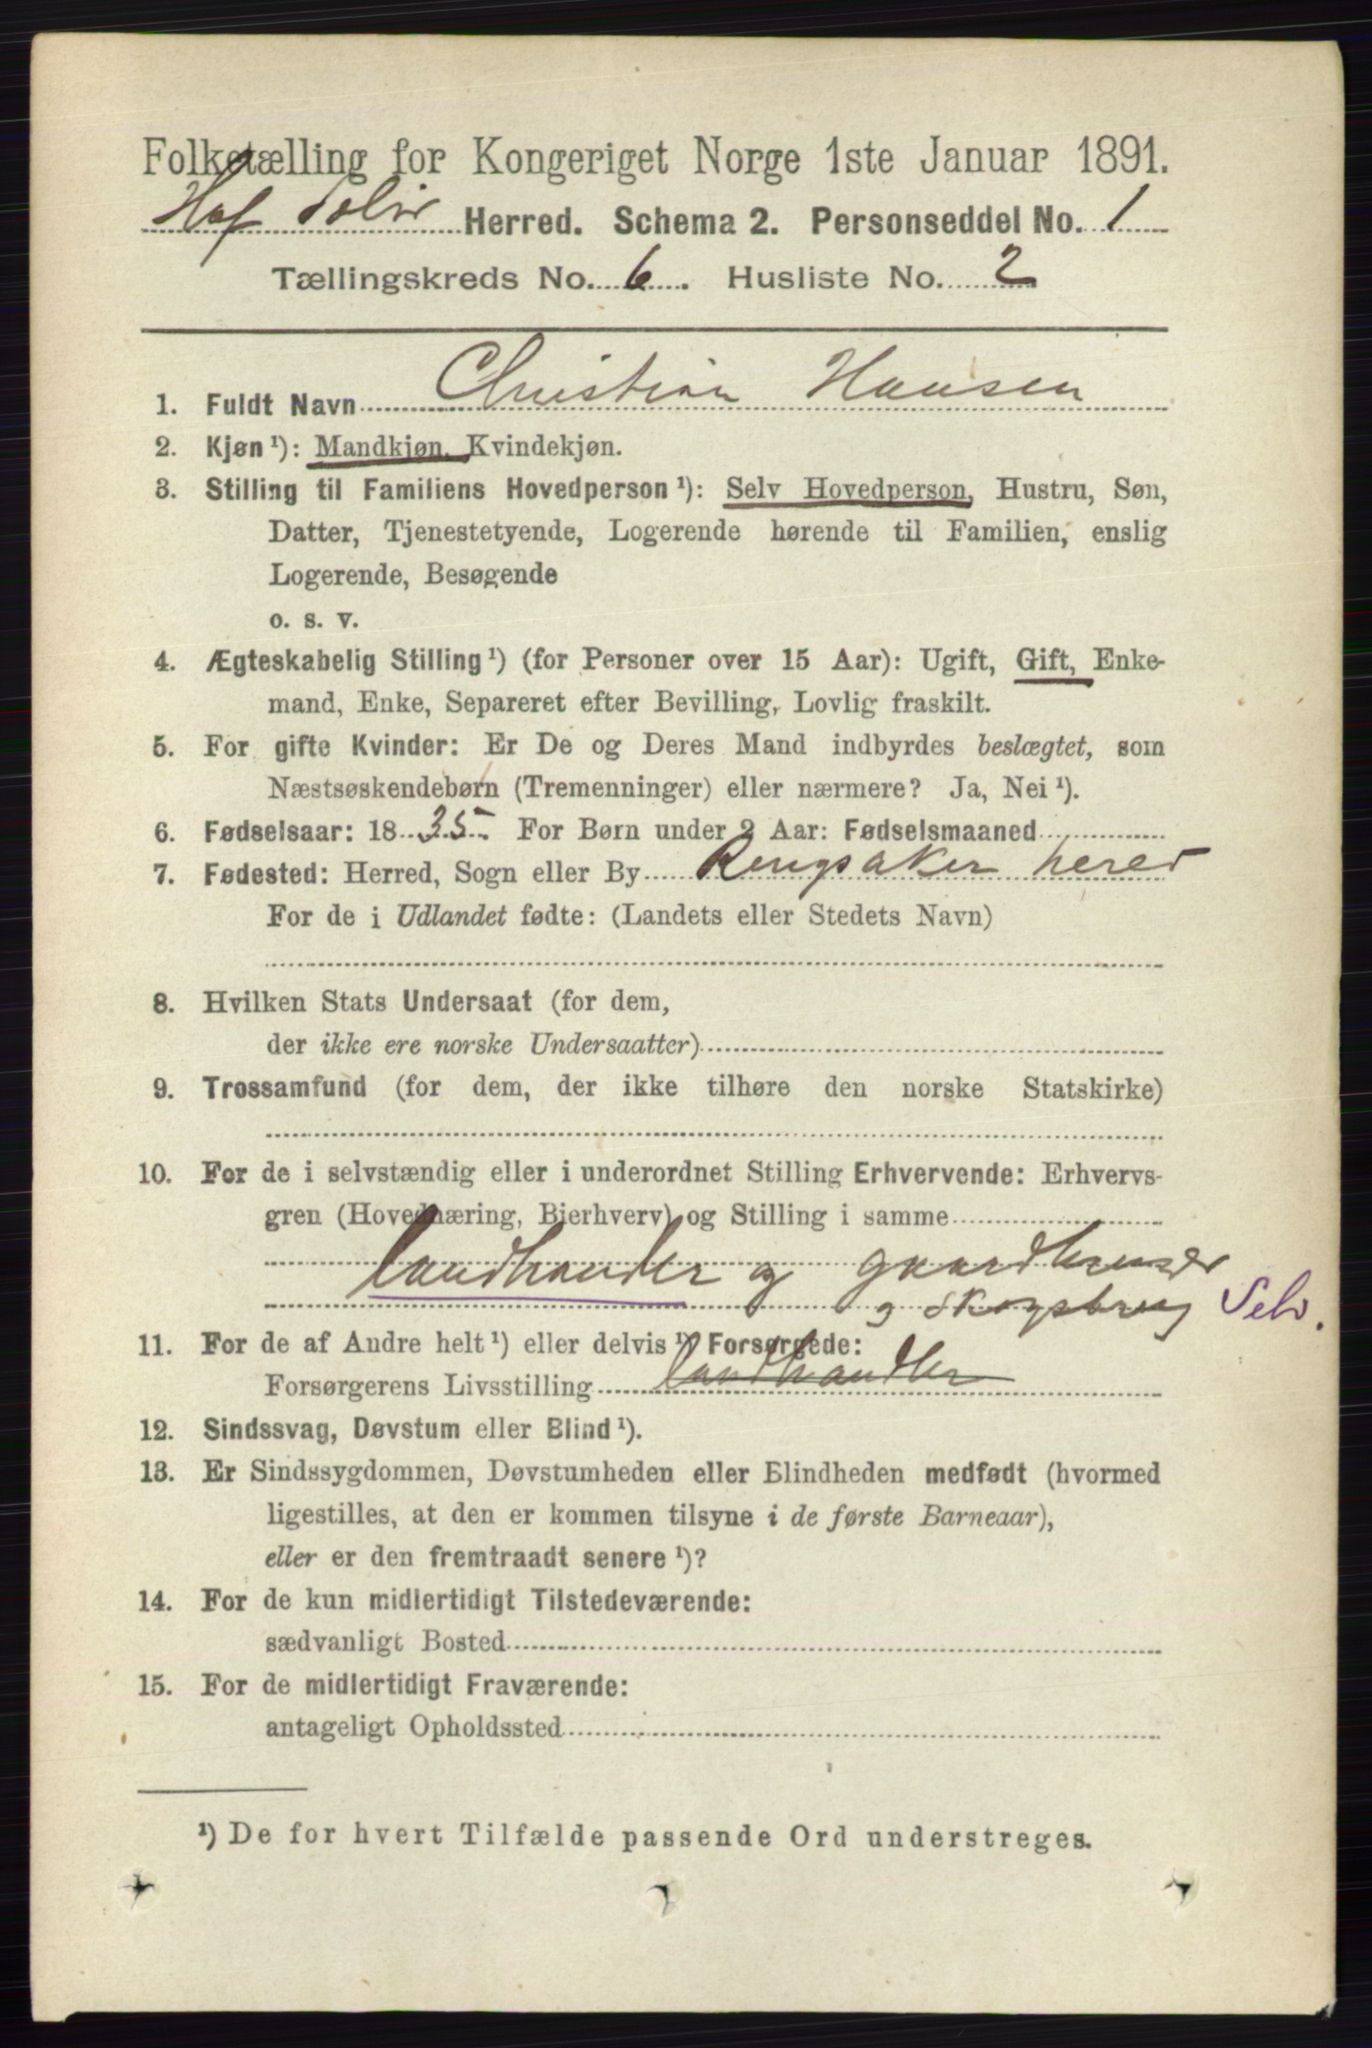 Folketælling for Kongeriget Norge 1ste Januar 1891.
Hof Solør Herred. Schema 2. Personseddel No. 1
Tællingskreds No. 6. Husliste No. 2
1. Fuldt Navn Christian Hansen
2. Kjøn¹): Mandkjøn, Kvindekjøn.
3. Stilling til Familiens Hovedperson¹): Selv Hovedperson, Hustru, Søn,
Datter, Tjenestetyende, Logerende hørende til Familien, enslig
Logerende, Besøgende
o. s. v.
4. Ægteskabelig Stilling¹) (for Personer over 15 Aar): Ugift, Gift, Enke-
mand, Enke, Separeret efter Bevilling, Lovlig fraskilt.
5. For gifte Kvinder: Er De og Deres Mand indbyrdes beslægtet, som
Næstsøskendebørn (Tremenninger) eller nærmere? Ja, Nei¹).
6. Fødselsaar: 1835. For Børn under 2 Aar: Fødselsmaaned
7. Fødested: Herred, Sogn eller By Ringsaker hered
For de i Udlandet fødte: (Landets eller Stedets Navn)
8. Hvilken Stats Undersaat (for dem,
der ikke ere norske Undersaatter)
9. Trossamfund (for dem, der ikke tilhøre den norske Statskirke)
10. For de i selvstændig eller i underordnet Stilling Erhvervende: Erhvervs-
gren (Hovednæring, Bierhverv) og Stilling i samme
landhandler og gaardbruger
og Skogsbrug Selv.
11. For de af Andre helt¹) eller delvis¹) Forsørgede:
Forsørgerens Livsstilling landhandler
12. Sindssvag, Døvstum eller Blind¹).
13. Er Sindssygdommen, Døvstumheden eller Blindheden medfødt (hvormed
ligestilles, at den er kommen tilsyne i de første Barneaar),
eller er den fremtraadt senere¹)?
14. For de kun midlertidigt Tilstedeværende:
sædvanligt Bosted
15. For de midlertidigt Fraværende:
antageligt Opholdssted
¹) De for hvert Tilfælde passende Ord understreges.